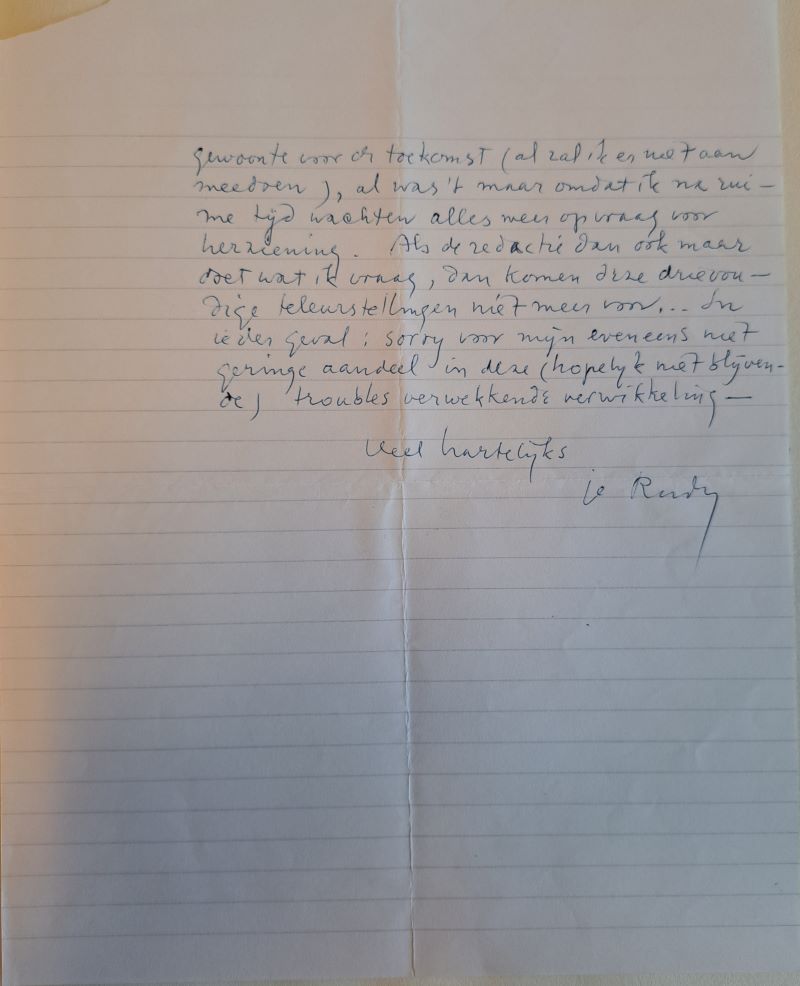 gewoonte voor de toekomst (al zal ik er niet aan
meedoen), al was't maar omdat ik na rui-
me tijd wachten alles weer opvraag voor
herziening. Als de redactie dan ook maar
doet wat ik vraag, dan komen deze drievou-
dige teleurstellingen niet meer voor... In
ieder geval: sorry voor mijn eveneens niet
geringe aandeel in deze (hopelijk niet blijven-
de) troubles verwekkende verwikkeling —
Veel hartelijks
je Rudy